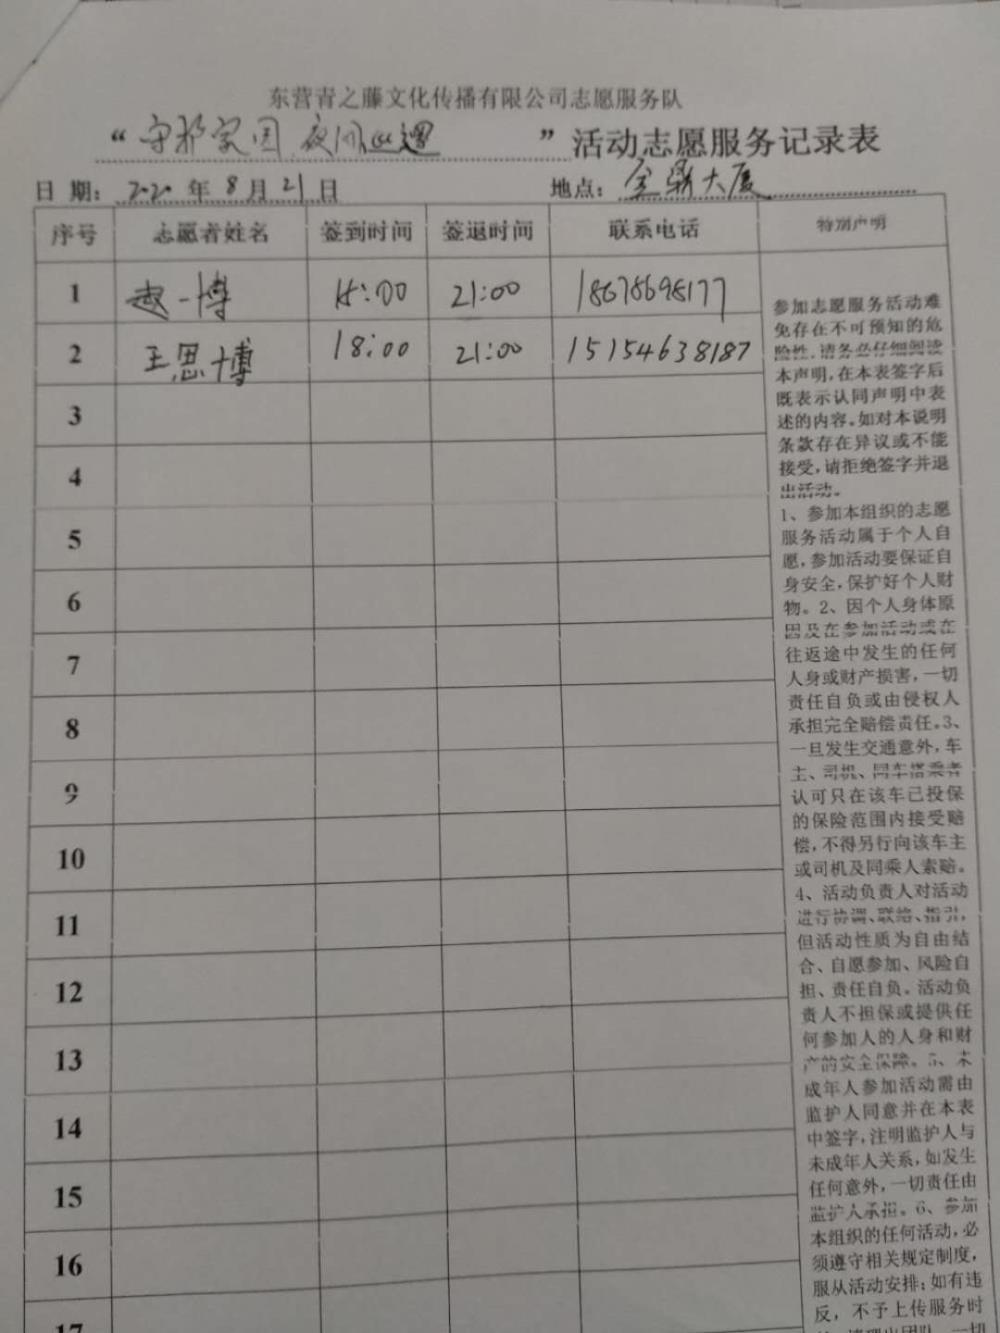 东营青之藤文化传播有限公司志愿服务队
“守护家园 夜间巡逻”活动志愿服务记录表
日 期: 2020 年 8 月 21 日 地点: 金鼎大厦
序号 志愿者姓名 签到时间 签退时间 联系电话 特别声明
1 赵一博 18:00 21:00 18678698177
2 王思博 18:00 21:00 15154638187
3
4
5
6
7
8
9
10
11
12
13
14
15
16
17
参加志愿服务活动难
免存在不可预知的危
险性,请务必仔细阅读
本声明,在本表签字后
既表示认同声明中表
述的内容。如对本说明
条款存在异议或不能
接受,请拒绝签字并退
出活动。
1、参加本组织的志愿
服务活动属于个人自
愿,参加活动要保证自
身安全,保护好个人财
物。2、因个人身体原
因及在参加活动或在
往返途中发生的任何
人身或财产损害,一切
责任自负或由侵权人
承担完全赔偿责任。3、
一旦发生交通意外,车
主、司机、同车搭乘者
认可只在该车已投保
的保险范围内接受赔
偿,不得另行向该车主
或司机及同乘人索赔。
4、活动负责人对活动
进行协调、联络、指引,
但活动性质为自由结
合、自愿参加、风险自
担、责任自负。活动负
责人不担保或提供任
何参加人的人身和财
产的安全保障。5、未
成年人参加活动需由
监护人同意并在本表
中签字,注明监护人与
未成年人关系,如发生
任何意外,一切责任由
监护人承担。6、参加
本组织的任何活动,必
须遵守相关规定制度,
服从活动安排;如有违
反,不予上传服务时